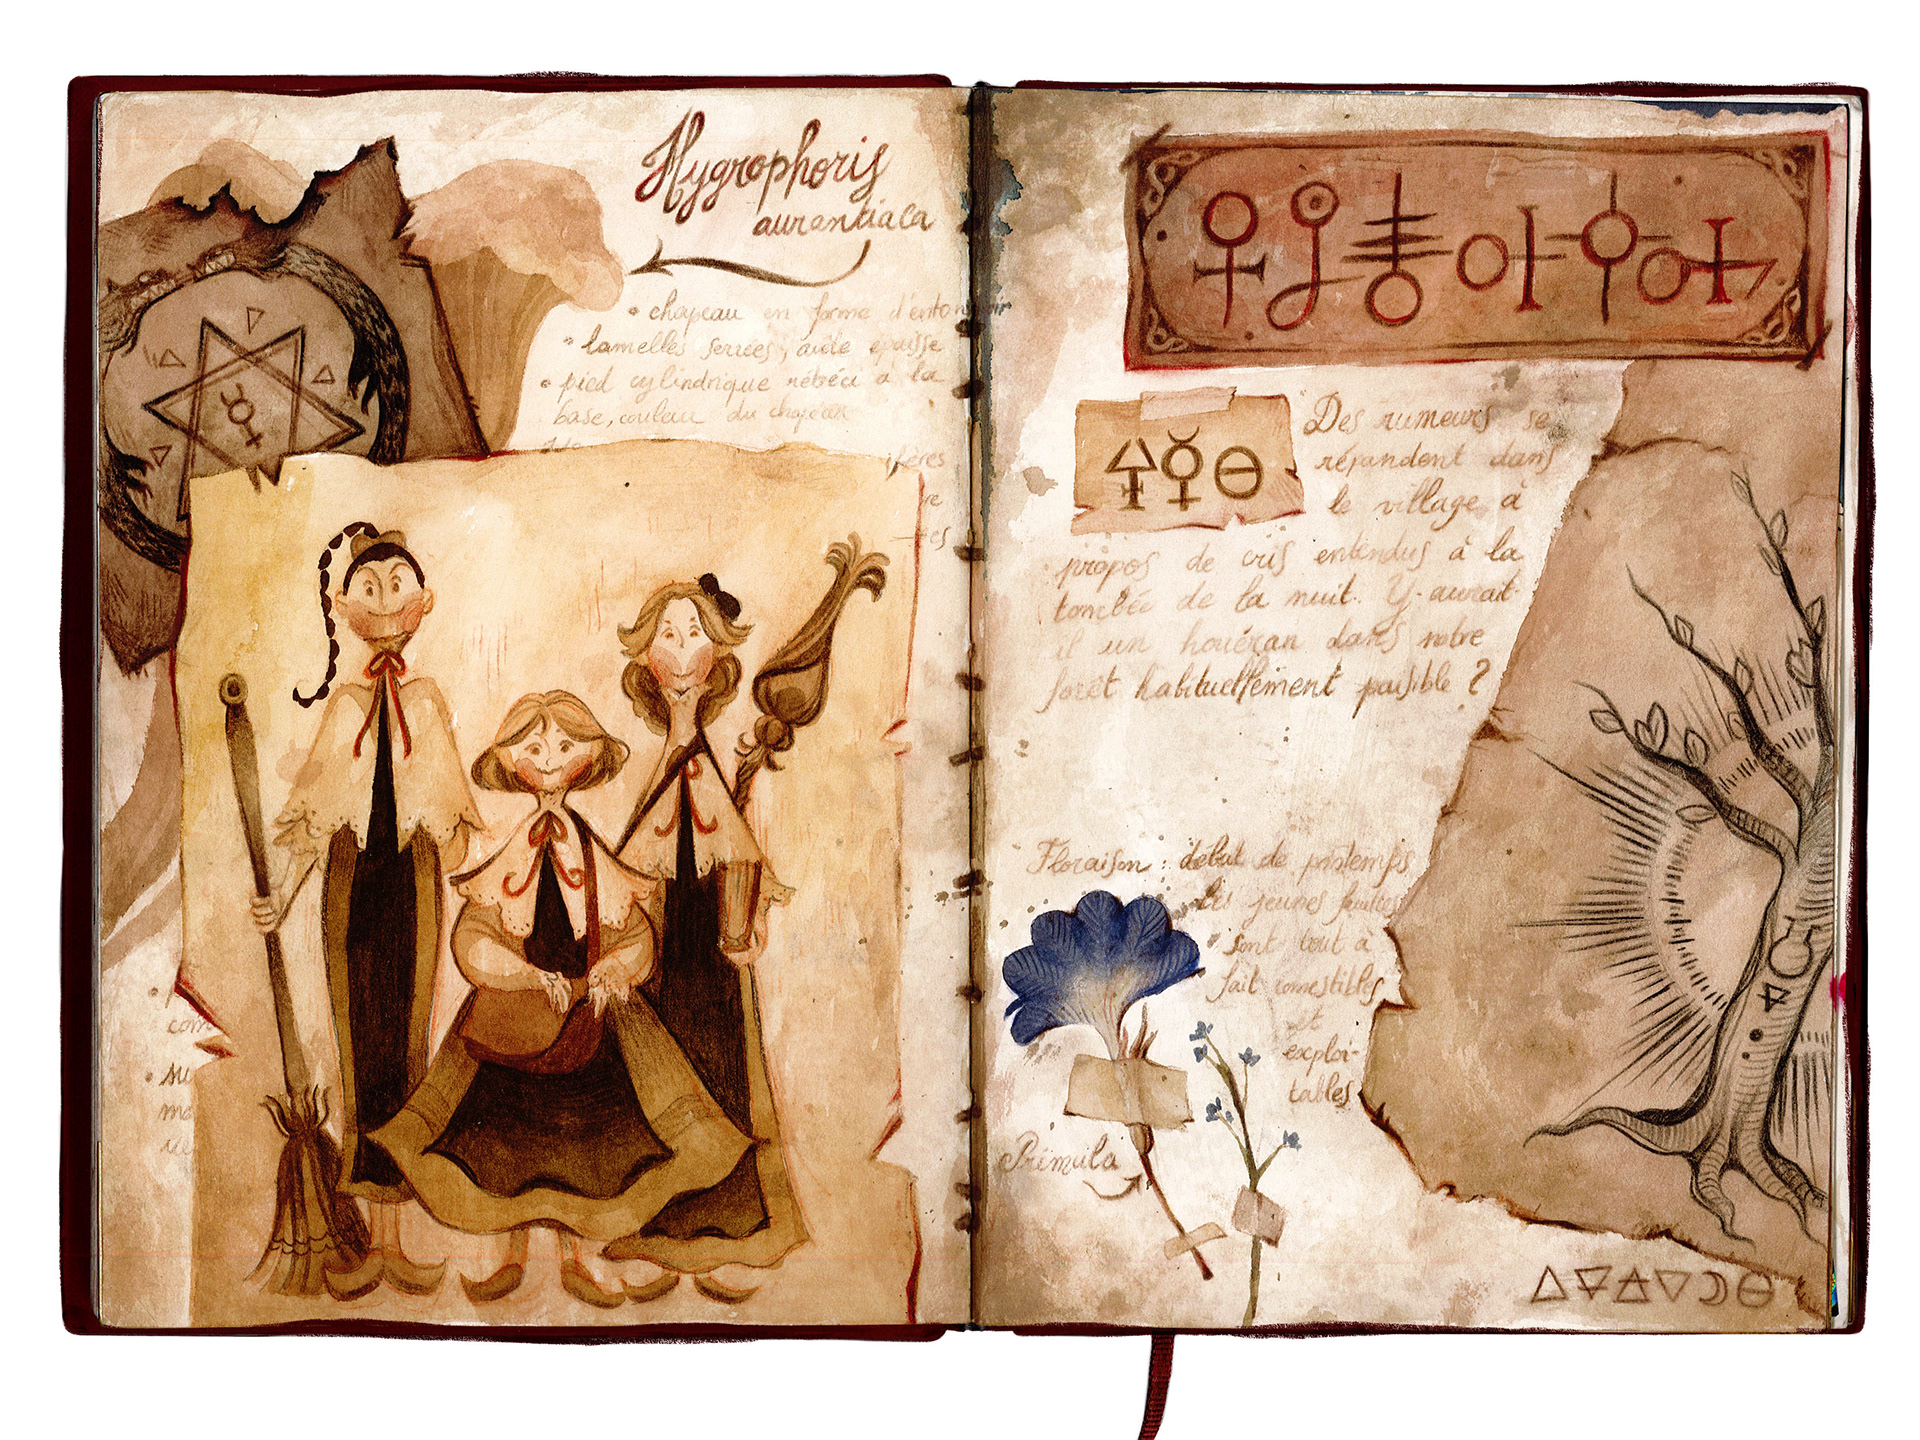 Hygrophoris
aurantiaca
• chapeau en forme d'entonnoir
• lamelles serrées, aide épaisse
• pied cylindrique rébéci à la
base, couleur du chapeau
ifères
re
es
com
su
ma
Des rumeurs se
répandent dans
le village à
propos de cris entendus à la
tombée de la nuit. Y-aurait-
il un houéran dans notre
forêt habituellement paisible ?
Floraison : début de printemps
les jeunes feuilles
sont tout à
fait comestibles
et
exploi-
tables
Primula